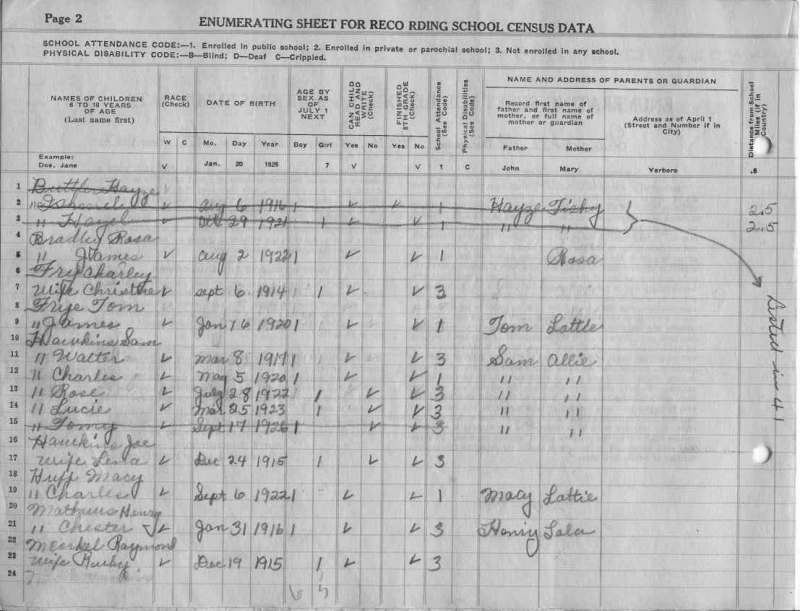 Page 2
ENUMERATING SHEET FOR RECO RDING SCHOOL CENSUS DATA
SCHOOL ATTENDANCE CODE:—1. Enrolled in public school; 2. Enrolled in private or parochial school; 3. Not enrolled in any school.
PHYSICAL DISABILITY CODE:—B—Blind; D—Deaf C—Crippled.
NAMES OF CHILDREN 6 TO 18 YEARS OF AGE (Last name first)
RACE (Check)
DATE OF BIRTH
AGE BY SEX AS OF JULY 1 NEXT
CAN CHILD READ AND WRITE (Check)
FINISHED 8TH GRADE (Check)
School Attendance (See Code)
Physical Disabilities (See Code)
NAME AND ADDRESS OF PARENTS OR GUARDIAN
Record first name of father and first name of mother, or full name of mother or guardian
Address as of April 1 (Street and Number if in City)
Distance from School Miles (if in Country)
W C Mo. Day Year Boy Girl Yes No Yes No Father Mother
Example: Doe, Jane V Jan. 20 1925 7 V V 1 C John Mary Yerbero .6
1 Hayze
2 " ✓ Aug 6 1916 ✓ ✓ 1 Hayze 2.5
3 " Hazel ✓ Oct 29 1921 1 ✓ ✓ 1 " " 2.5
4 Bradley Rosa
5 " James ✓ Aug 2 1922 1 ✓ ✓ 1 Rosa
6 Fry Charley
7 Wife Christine ✓ Sept 6 1914 1 ✓ ✓ 3
8 Frye Tom
9 " James ✓ Jan 16 1920 1 ✓ ✓ 1 Tom Lottie
10 Hawkins Sam
11 " Walter ✓ Mar 8 1917 1 ✓ ✓ 3 Sam Allie
12 " Charles ✓ May 5 1920 1 ✓ ✓ 1 " "
13 " Rose ✓ July 28 1922 1 ✓ ✓ 3 " "
14 " Lucie ✓ Mar 25 1923 1 ✓ ✓ 3 " "
15 " Tomy ✓ Sept 17 1926 1 ✓ ✓ 3 " "
16 Hawkins Joe
17 Wife Lena ✓ Dec 24 1915 1 ✓ ✓ 3
18 Huff Macy
19 " Charles ✓ Sept 6 1922 1 ✓ ✓ 1 Macy Lottie
20 Mathews Henry
21 " Chester J ✓ Jan 31 1916 1 ✓ ✓ 3 Henry Lola
22 Raymond
23 Wife Ruby ✓ Dec 19 1915 1 ✓ ✓ 3
24
Listed in 41